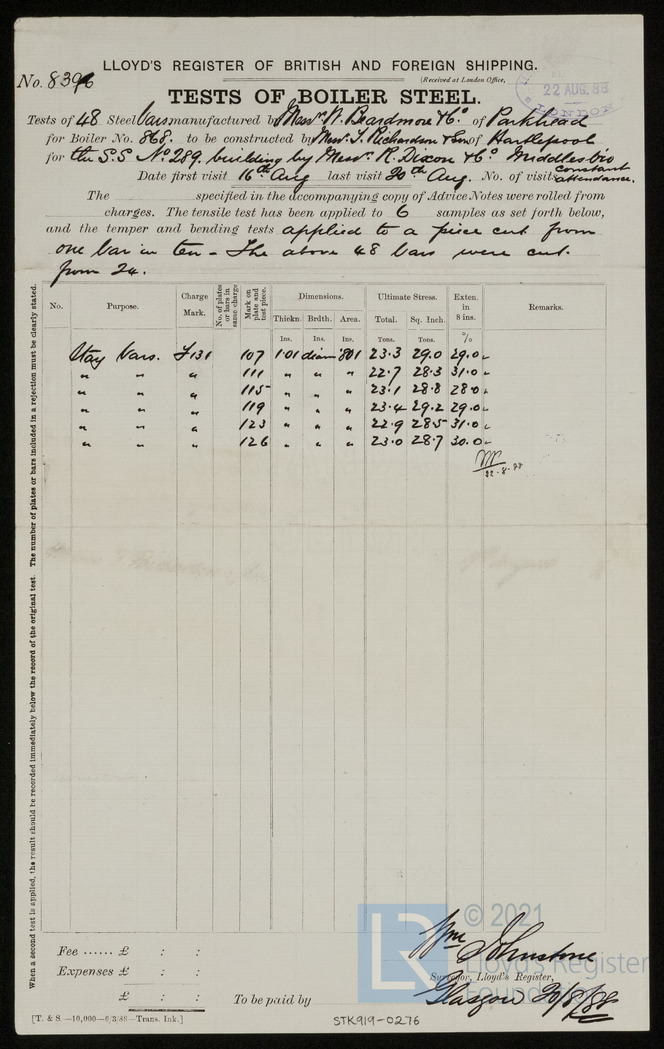 LLOYD'S REGISTER OF BRITISH AND FOREIGN SHIPPING.
No. 8396
(Received at London Office,
22 AUG. 88
LONDON
TESTS OF BOILER STEEL.
Tests of 48 Steel bars manufactured by Messrs. W. Beardmore & Co. of Parkhead
for Boiler No. 868. to be constructed by Messrs. T. Richardson & Son of Hartlepool
for the S.S No 289, building by Messrs. R. Dixon & Co. Middlesbro
Date first visit 16th Aug last visit 20th Aug. No. of visits constant attendance.
The specified in the accompanying copy of Advice Notes were rolled from
charges. The tensile test has been applied to 6 samples as set forth below,
and the temper and bending tests applied to a piece cut from
one bar in ten - The above 48 bars were cut
from 24.
No. Purpose. Charge Mark. No. of plates or bars in same charge Mark on plate and test piece. Dimensions. Ultimate Stress. Exten. in 8 ins. Remarks.
Thickn. Brdth. Area. Total. Sq. Inch.
Ins. Ins. Ins. Tons. Tons. %
Stay bars. F131 107 1.01 diam .801 23.3 29.0 29.0
" " " 111 " " " 22.7 28.3 31.0
" " " 115 " " " 23.1 28.8 28.0
" " " 119 " " " 23.4 29.2 29.0
" " " 123 " " " 22.9 28.5 31.0
" " " 126 " " " 23.0 28.7 30.0
22-8-88
When a second test is applied, the result should be recorded immediately below the record of the original test. The number of plates or bars included in a rejection must be clearly stated.
LR
© 2021
Lloyd's Register
Foundation
Fee ...... £ : :
Expenses £ : :
£ : :
To be paid by
Wm Johnstone
Surveyor, Lloyd's Register,
Glasgow 20/8/88
[T. & S.—10,000—6/3/88—Trans. Ink.]
STK919-0276